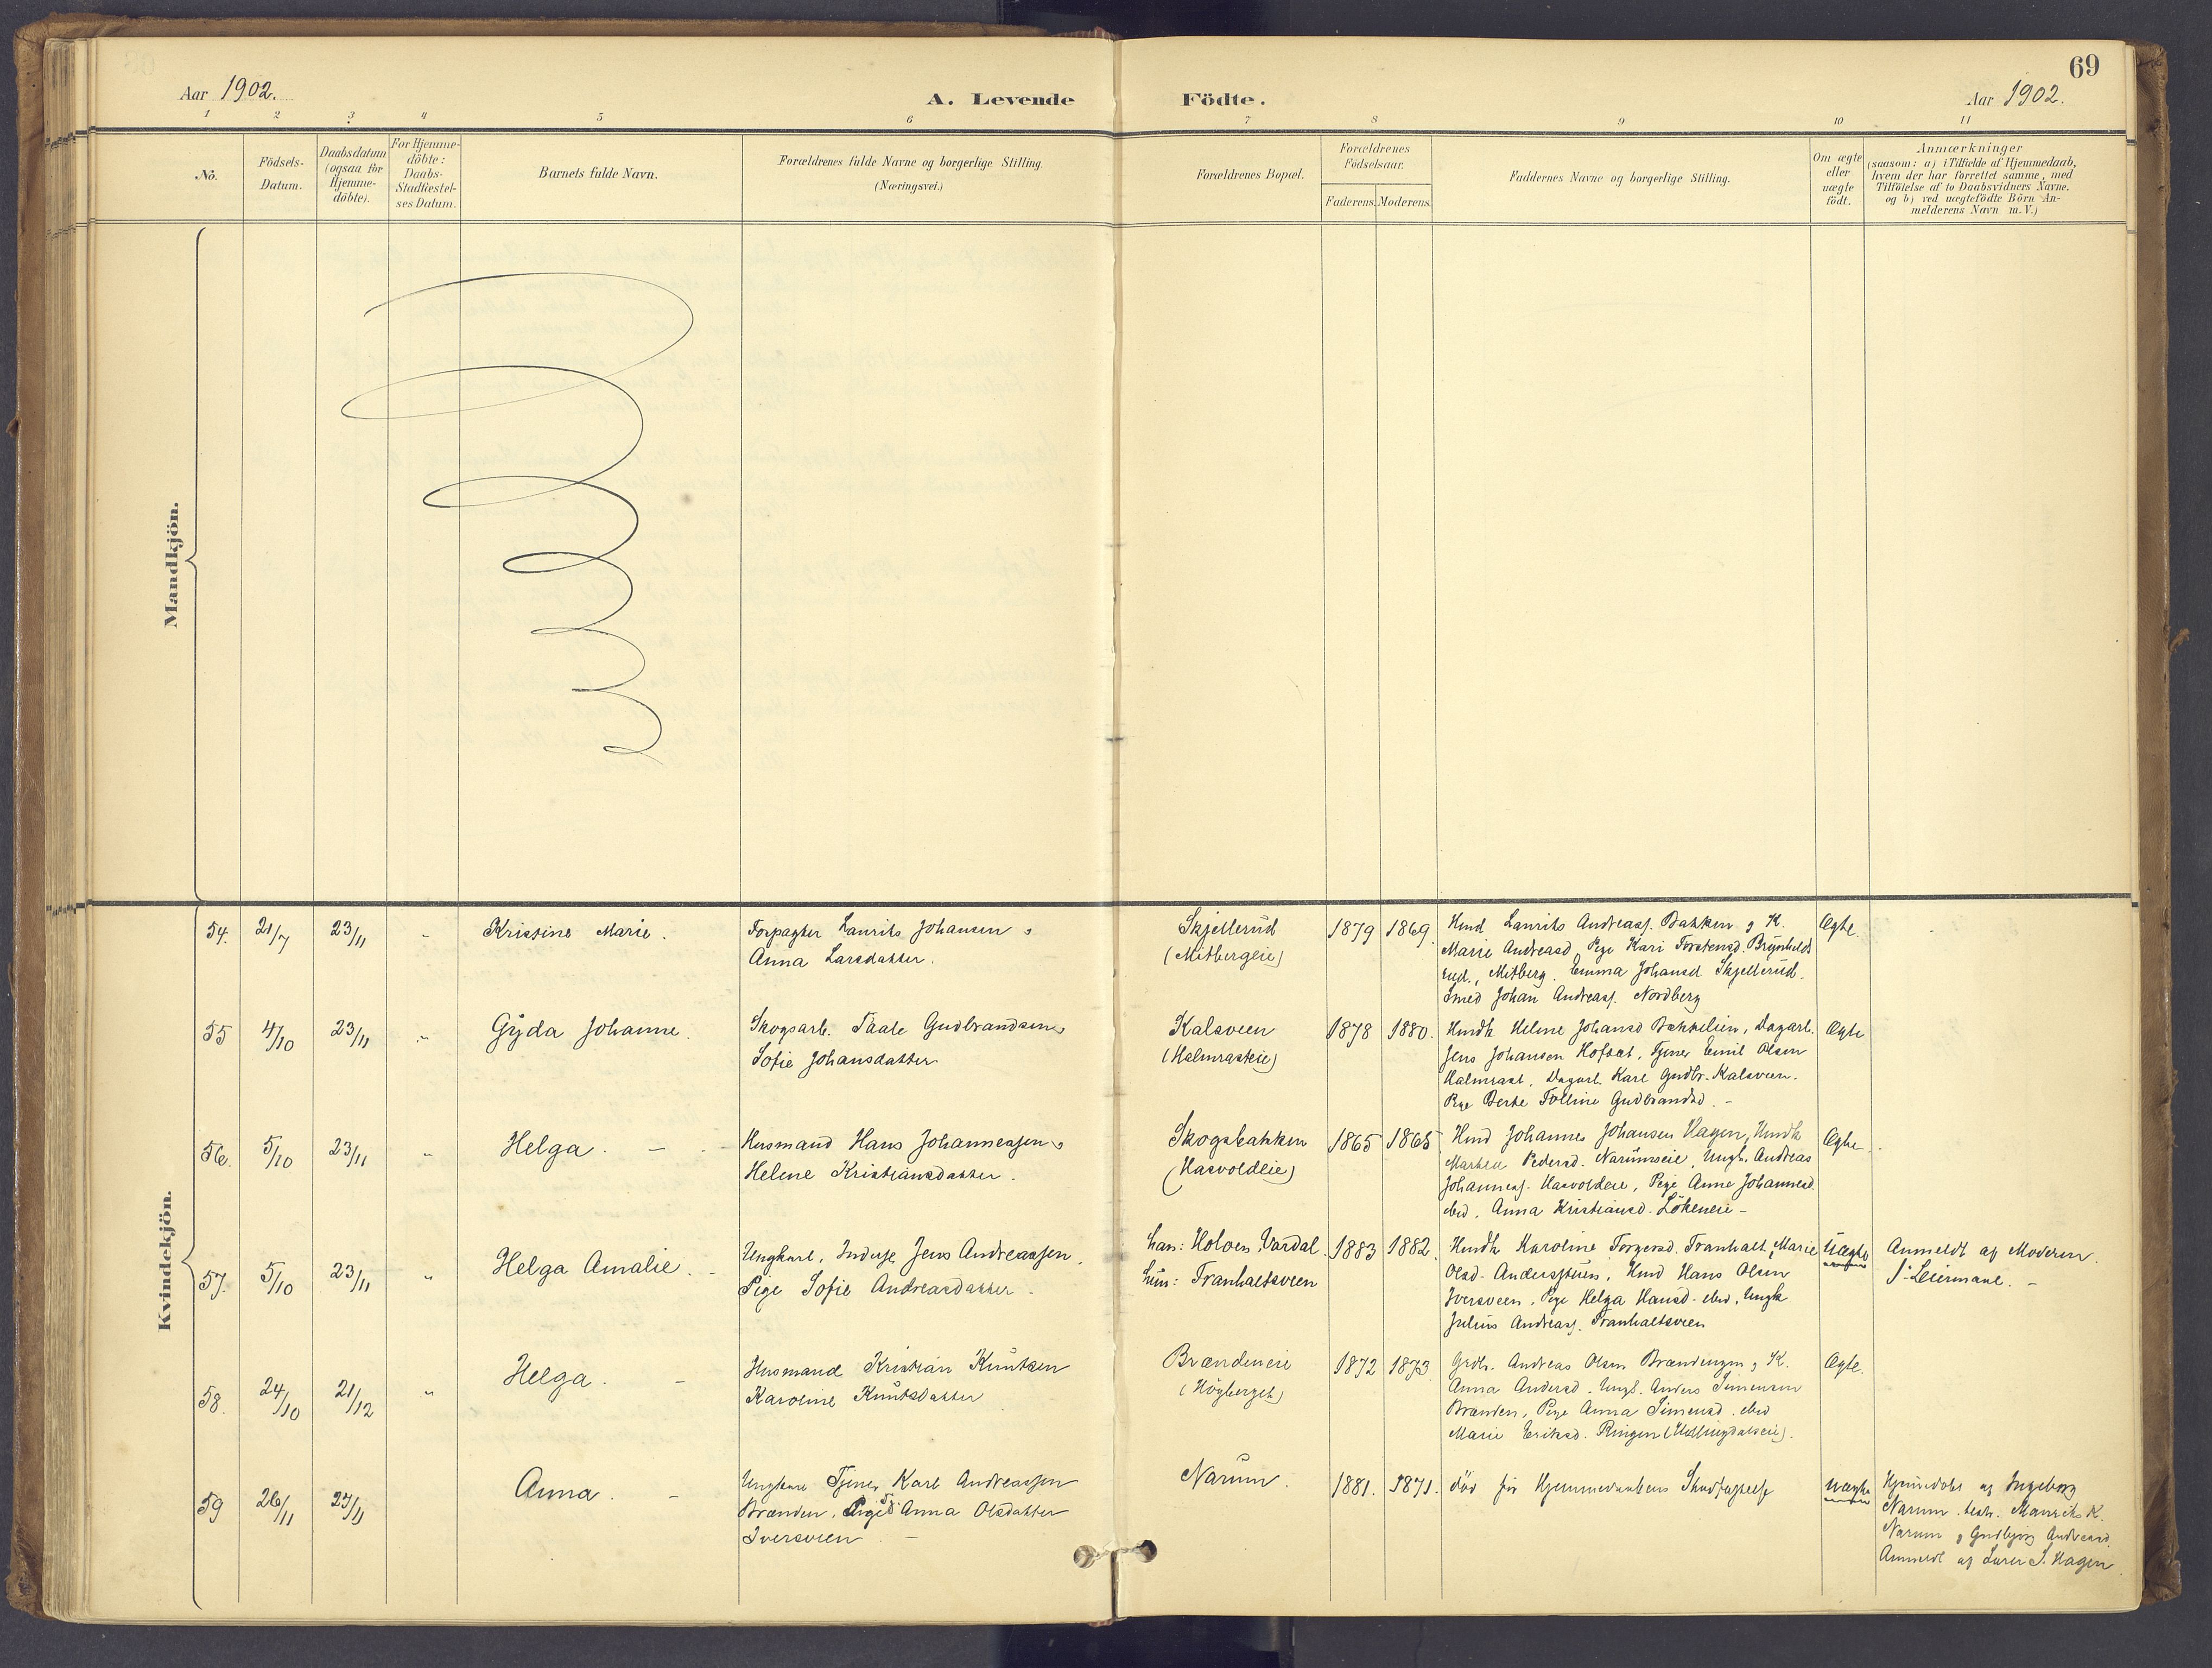 69
Aar 1902.
A. Levende Födte.
Aar 1902.
1 2 3 4 5 6 7 8 9 10 11
No.
Födsels-
Datum.
Daabsdatum
(ogsaa for
Hjemme-
döbte).
For Hjemme-
döbte:
Daabs-
Stadfæstel-
ses Datum.
Barnets fulde Navn.
Forældrenes fulde Navne og borgerlige Stilling.
(Næringsvei.)
Forældrenes Bopæl.
Forældrenes
Födselsaar.
Faderens. Moderens.
Faddernes Navne og borgerlige Stilling.
Om ægte
eller
uægte
födt.
Anmærkninger
(saasom: a) i Tilfælde af Hjemmedaab,
hvem der har forrettet samme, med
Tilföielse af to Daabsvidners Navne.
og b) ved uægtefödte Börn An-
melderens Navn m. V.)
Mandkjön.
Kvindekjön.
54. 21/7 23/11 " Kristine Marie.
Forpagter Laurits Johansen &
Anna Larsdatter.
Skjellerud
(Mitbergeie)
1879 1869.
Hmd Laurits Andreass. Bakken & K.
Marie Andreasd Pige Kari Torstensd. Brynhilds
rud, Mitberg. Emma Johansd Skjellerud.
Smed Johan Andreass. Nordberg
Ægte.
55 4/10 23/11 " Gyda Johanne.
Skogsarb. Taale Gudbrandsen &
Sofie Johansdatter
Kalsveen
(Halmrasteie)
1878 1880.
Hmdk Helene Johansd Bakkelien, Dagarb.
Jens Johansen Hofsæt, Tjener Emil Olsen
Halmrast, Dagarb. Karl Gudbr. Kalsveen.
Pige Berte Tolline Gudbrandsd. -
Ægte
56. 5/10 23/11 " Helga. -
Husmand Hans Johannessen &
Helene Kristiansdatter.
Skogsbakken
(Hasvoldeie)
1865 1865
Hmd Johannes Johansen Hagen, Hmdk
Marthea Pedersd. Narumseie, Ungk. Andreas
Johanness. Hasvoldeie, Pige Anne Johannesd.
ibid. Anna Kristiansd. Lökeneie -
Ægte.
57. 5/10 23/11 " Helga Amalie. -
Ungkarl, Inderst Jens Andreassen,
Pige Sofie Andreasdatter -
han: Holven, Vardal.
hun: Tranhaltsveen
1883 1882.
Hmdk Karoline Torgersd. Tranhalt, Marie
Olsd. Andersstuen, Hmd Hans Olsen
Iversveen, Pige Helga Hansd. ibid, Ungk
Julius Andreass. Tranhaltsveen
Uægte
Anmeldt af Moderen.
1ste Leiermaal. -
58. 24/10 21/12 " Helga. -
Husmand Kristian Knutsen
Karoline Knutsdatter
Brændeneie
(Högberget)
1872 1873.
Grdbr. Andreas Olsen Brændengen & K.
Anna Andersd. Ungk. Anders Simensen
Brænden, Pige Anna Simensd. ibid
Marie Eriksd. Ringen
Ægte.
59 26/11 27/11 Anna. -
Ungkarl Tjener Karl Andreassen
Brænden, Pige Anna Olsdatter
Iversveen. -
Narum.
1881. 1871.
död för Hjemmedaabens Stadfæstelse
uægte
Hjemmedöbt af Ingeborg
Narum. test. Mauritz K.
Narum & Gudbjörg Andreasd.
Anmeldt af Lærer S. Hagen.